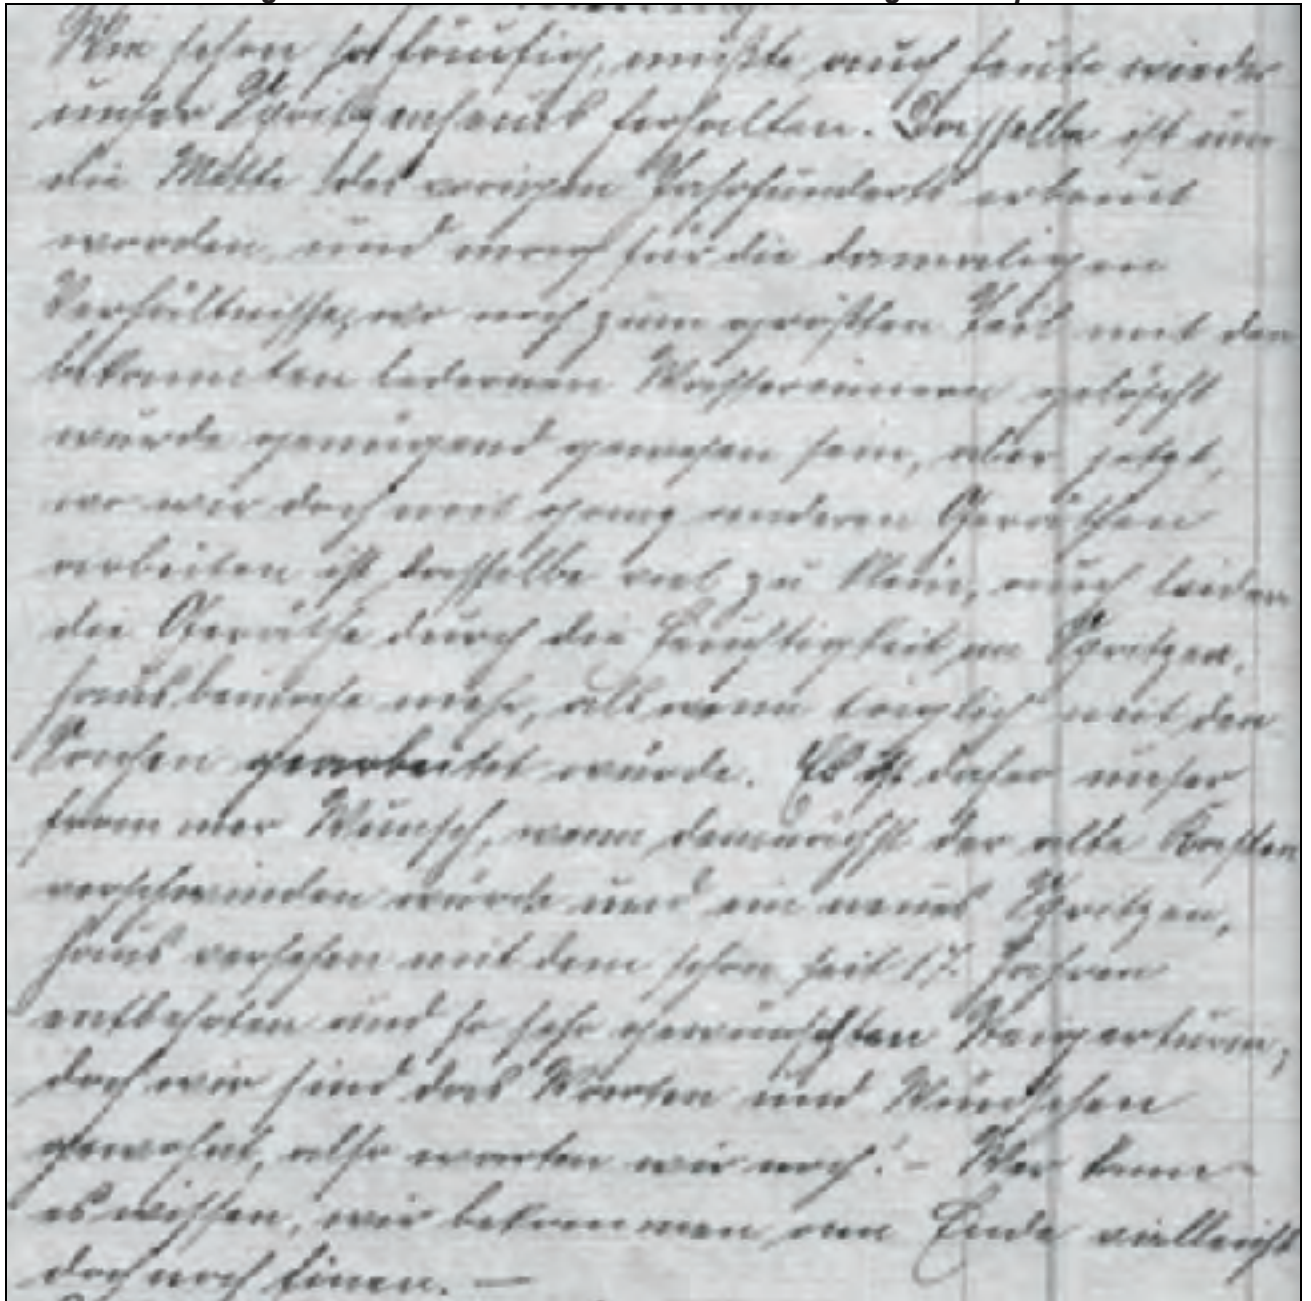 Wie schon so häufig, mußte auch heute wieder
unser Spritzenhaus herhalten. Dasselbe ist um
die Mitte des vorigen Jahrhunderts erbaut
worden und mag für die damaligen
Verhältnisse, wo noch zum größten Teil mit den
bekannten ledernen Wassereimern gelöscht
wurde genügend gewesen sein, aber jetzt,
wo wir doch mit ganz anderen Geräthen
arbeiten ist dasselbe viel zu klein, auch leiden
die Geräthe durch die Feuchtigkeit im Spritzen-
haus beinahe mehr, als wenn täglich mit den
Sachen gearbeitet würde. Es ist daher unser
frommer Wunsch, wenn demnächst der alte Kasten
verschwinden würde und ein neues Spritzen-
haus versehen mit dem schon seit 17. Jahren
entbehrten und so sehr gewünschten Steigerturm,
doch wir sind das Warten und Wünschen
gewohnt, also warten wir noch! - Wer kann
es wissen, wir bekommen am Ende vielleicht
doch noch einen. —